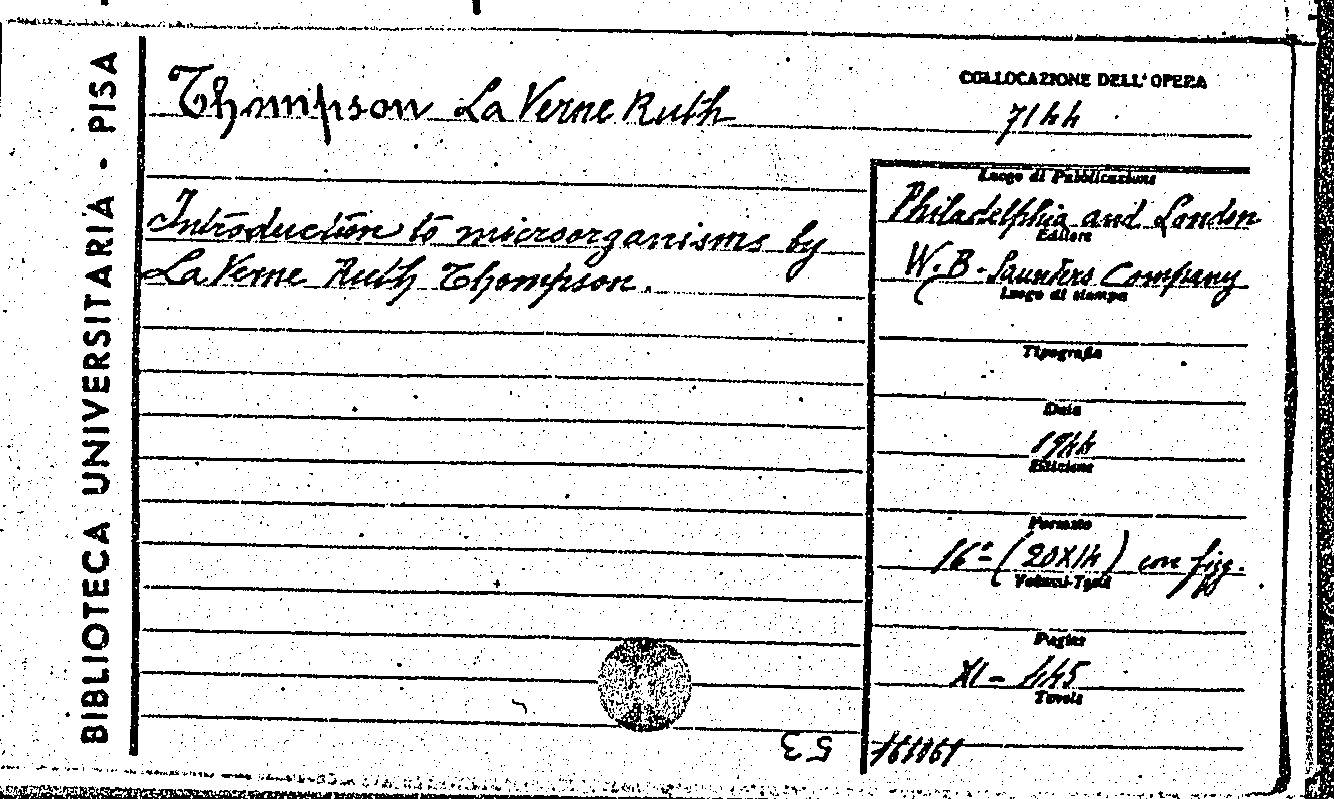 BIBLIOTECA UNIVERSITARIA - PISA
Thompson La Verne Ruth
COLLOCAZIONE DELL'OPERA
7144
Introduction to microorganisms by
La Verne Ruth Thompson.
Luogo di Pubblicazione
Philadelphia and London
Editore
W. B. Saunders Company
Luogo di stampa
Tipografia
Data
1944
Edizione
Formato
16º (20X14) con figg.
Volumi-Tomi
Pagine
XI - 445
Tavole
161061
53